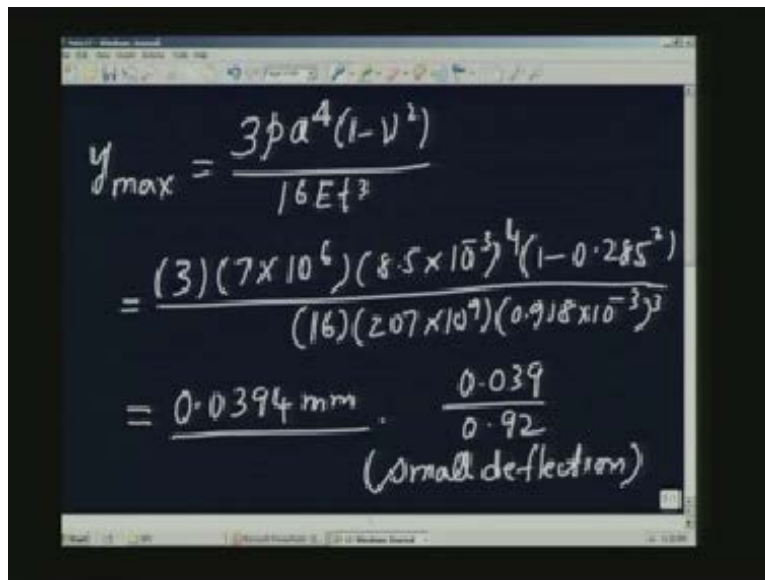 y max = 3pa⁴(1-ν²) / 16Et³
= (3)(7×10⁶)(8.5×10⁻³)⁴(1-0.285²) / (16)(207×10⁹)(0.918×10⁻³)³
= 0.0394 mm. 0.039 / 0.92
(small deflection)